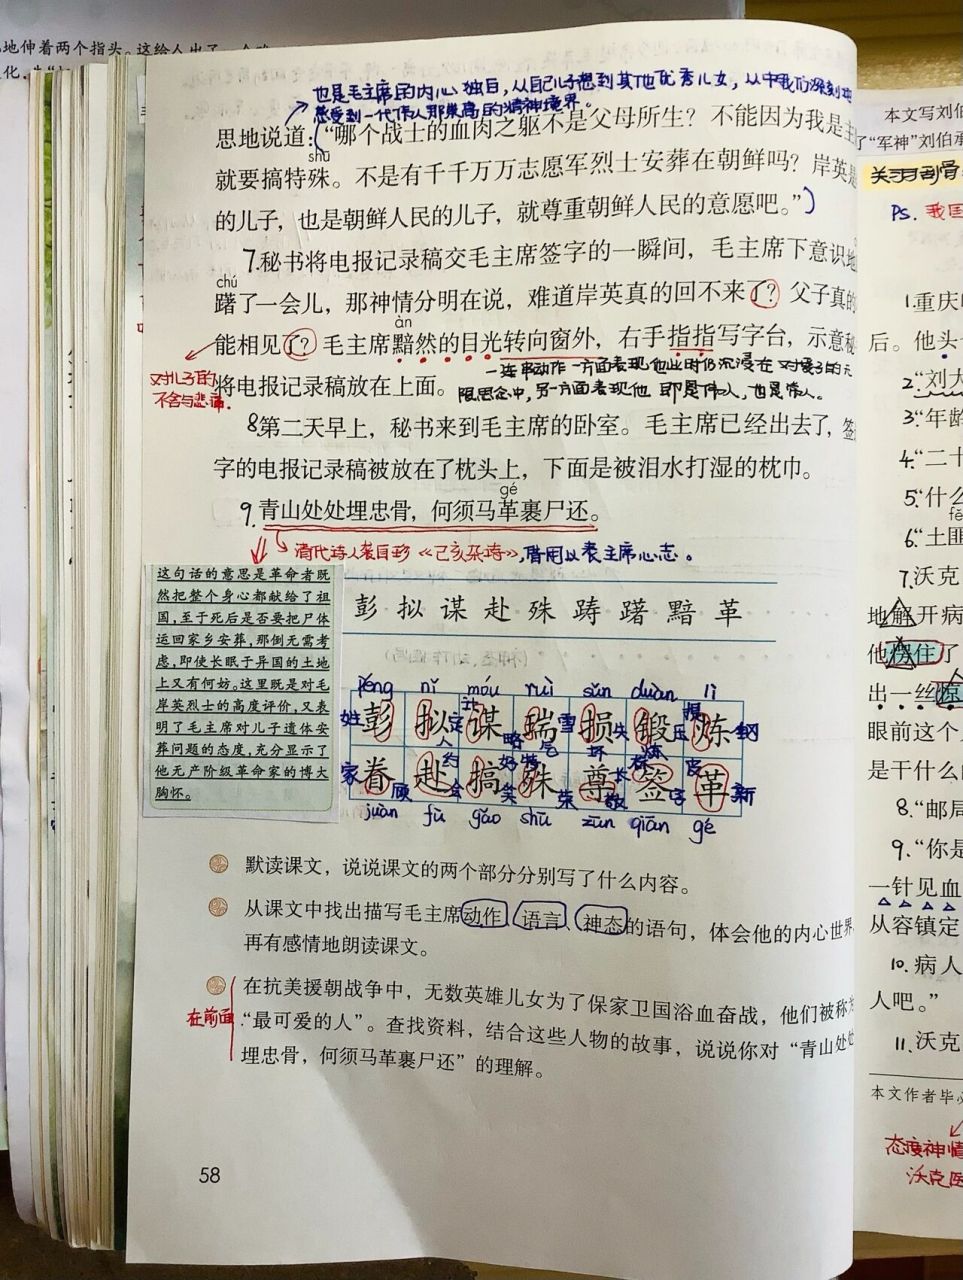 也是毛主席的内心独白,从自己儿子想到其他优秀儿女,从中我们深刻地
感受到一代伟人那崇高的精神境界。
思地说道:“哪个战士的血肉之躯不是父母所生?不能因为我是主
shū
就要搞特殊。不是有千千万万志愿军烈士安葬在朝鲜吗?岸英是
的儿子,也是朝鲜人民的儿子,就尊重朝鲜人民的意愿吧。”
7.秘书将电报记录稿交毛主席签字的一瞬间,毛主席下意识地
chú
躇了一会儿,那神情分明在说,难道岸英真的回不来了?父子真的
àn
能相见了?毛主席黯然的目光转向窗外,右手指指写字台,示意秘
一连串动作一方面表现他此时仍沉浸在对爱子的无
对儿子的
不舍与悲痛.
将电报记录稿放在上面。
限思念中,另一方面表现他即是伟人,也是常人。
8第二天早上,秘书来到毛主席的卧室。毛主席已经出去了,签
字的电报记录稿被放在了枕头上,下面是被泪水打湿的枕巾。
gé
9.青山处处埋忠骨,何须马革裹尸还。
清代诗人龚自珍《己亥杂诗》,借用以表主席心志。
这句话的意思是革命者既
然把整个身心都献给了祖
国,至于死后是否要把尸体
运回家乡安葬,那倒无需考
虑,即使长眠于异国的土地
上又有何妨。这里既是对毛
岸英烈士的高度评价,又表
明了毛主席对儿子遗体安
葬问题的态度,充分显示了
他无产阶级革命家的博大
胸怀。
彭拟谋赴殊踌躇黯革
péng nǐ móu ruì sǔn duàn liàn
姓彭 拟定 谋 瑞雪 损失 锻 炼钢
家眷顾 赴约会 搞笑 特殊荣 尊敬 签字 皮革新
juàn fù gǎo shū zūn qiān gé
默读课文,说说课文的两个部分分别写了什么内容。
从课文中找出描写毛主席动作、语言、神态的语句,体会他的内心世界
再有感情地朗读课文。
在抗美援朝战争中,无数英雄儿女为了保家卫国浴血奋战,他们被称为
在前面
“最可爱的人”。查找资料,结合这些人物的故事,说说你对“青山处处
埋忠骨,何须马革裹尸还”的理解。
58
地伸着两个指头。这给人出了一个
化,
本文写刘伯
了“军神”刘伯承
Ps. 我国
1.重庆
后。他头
2.“刘大
3.“年龄
4.“二十
5.“什么
6.“土匪
7.沃克
地解开病
他愣住了
出一丝惊
眼前这个
是干什么
8.“邮局
9.“你是
一针见血
从容镇定
10.病人
人吧。”
11.沃克
本文作者毕必
态度神情
沃克医